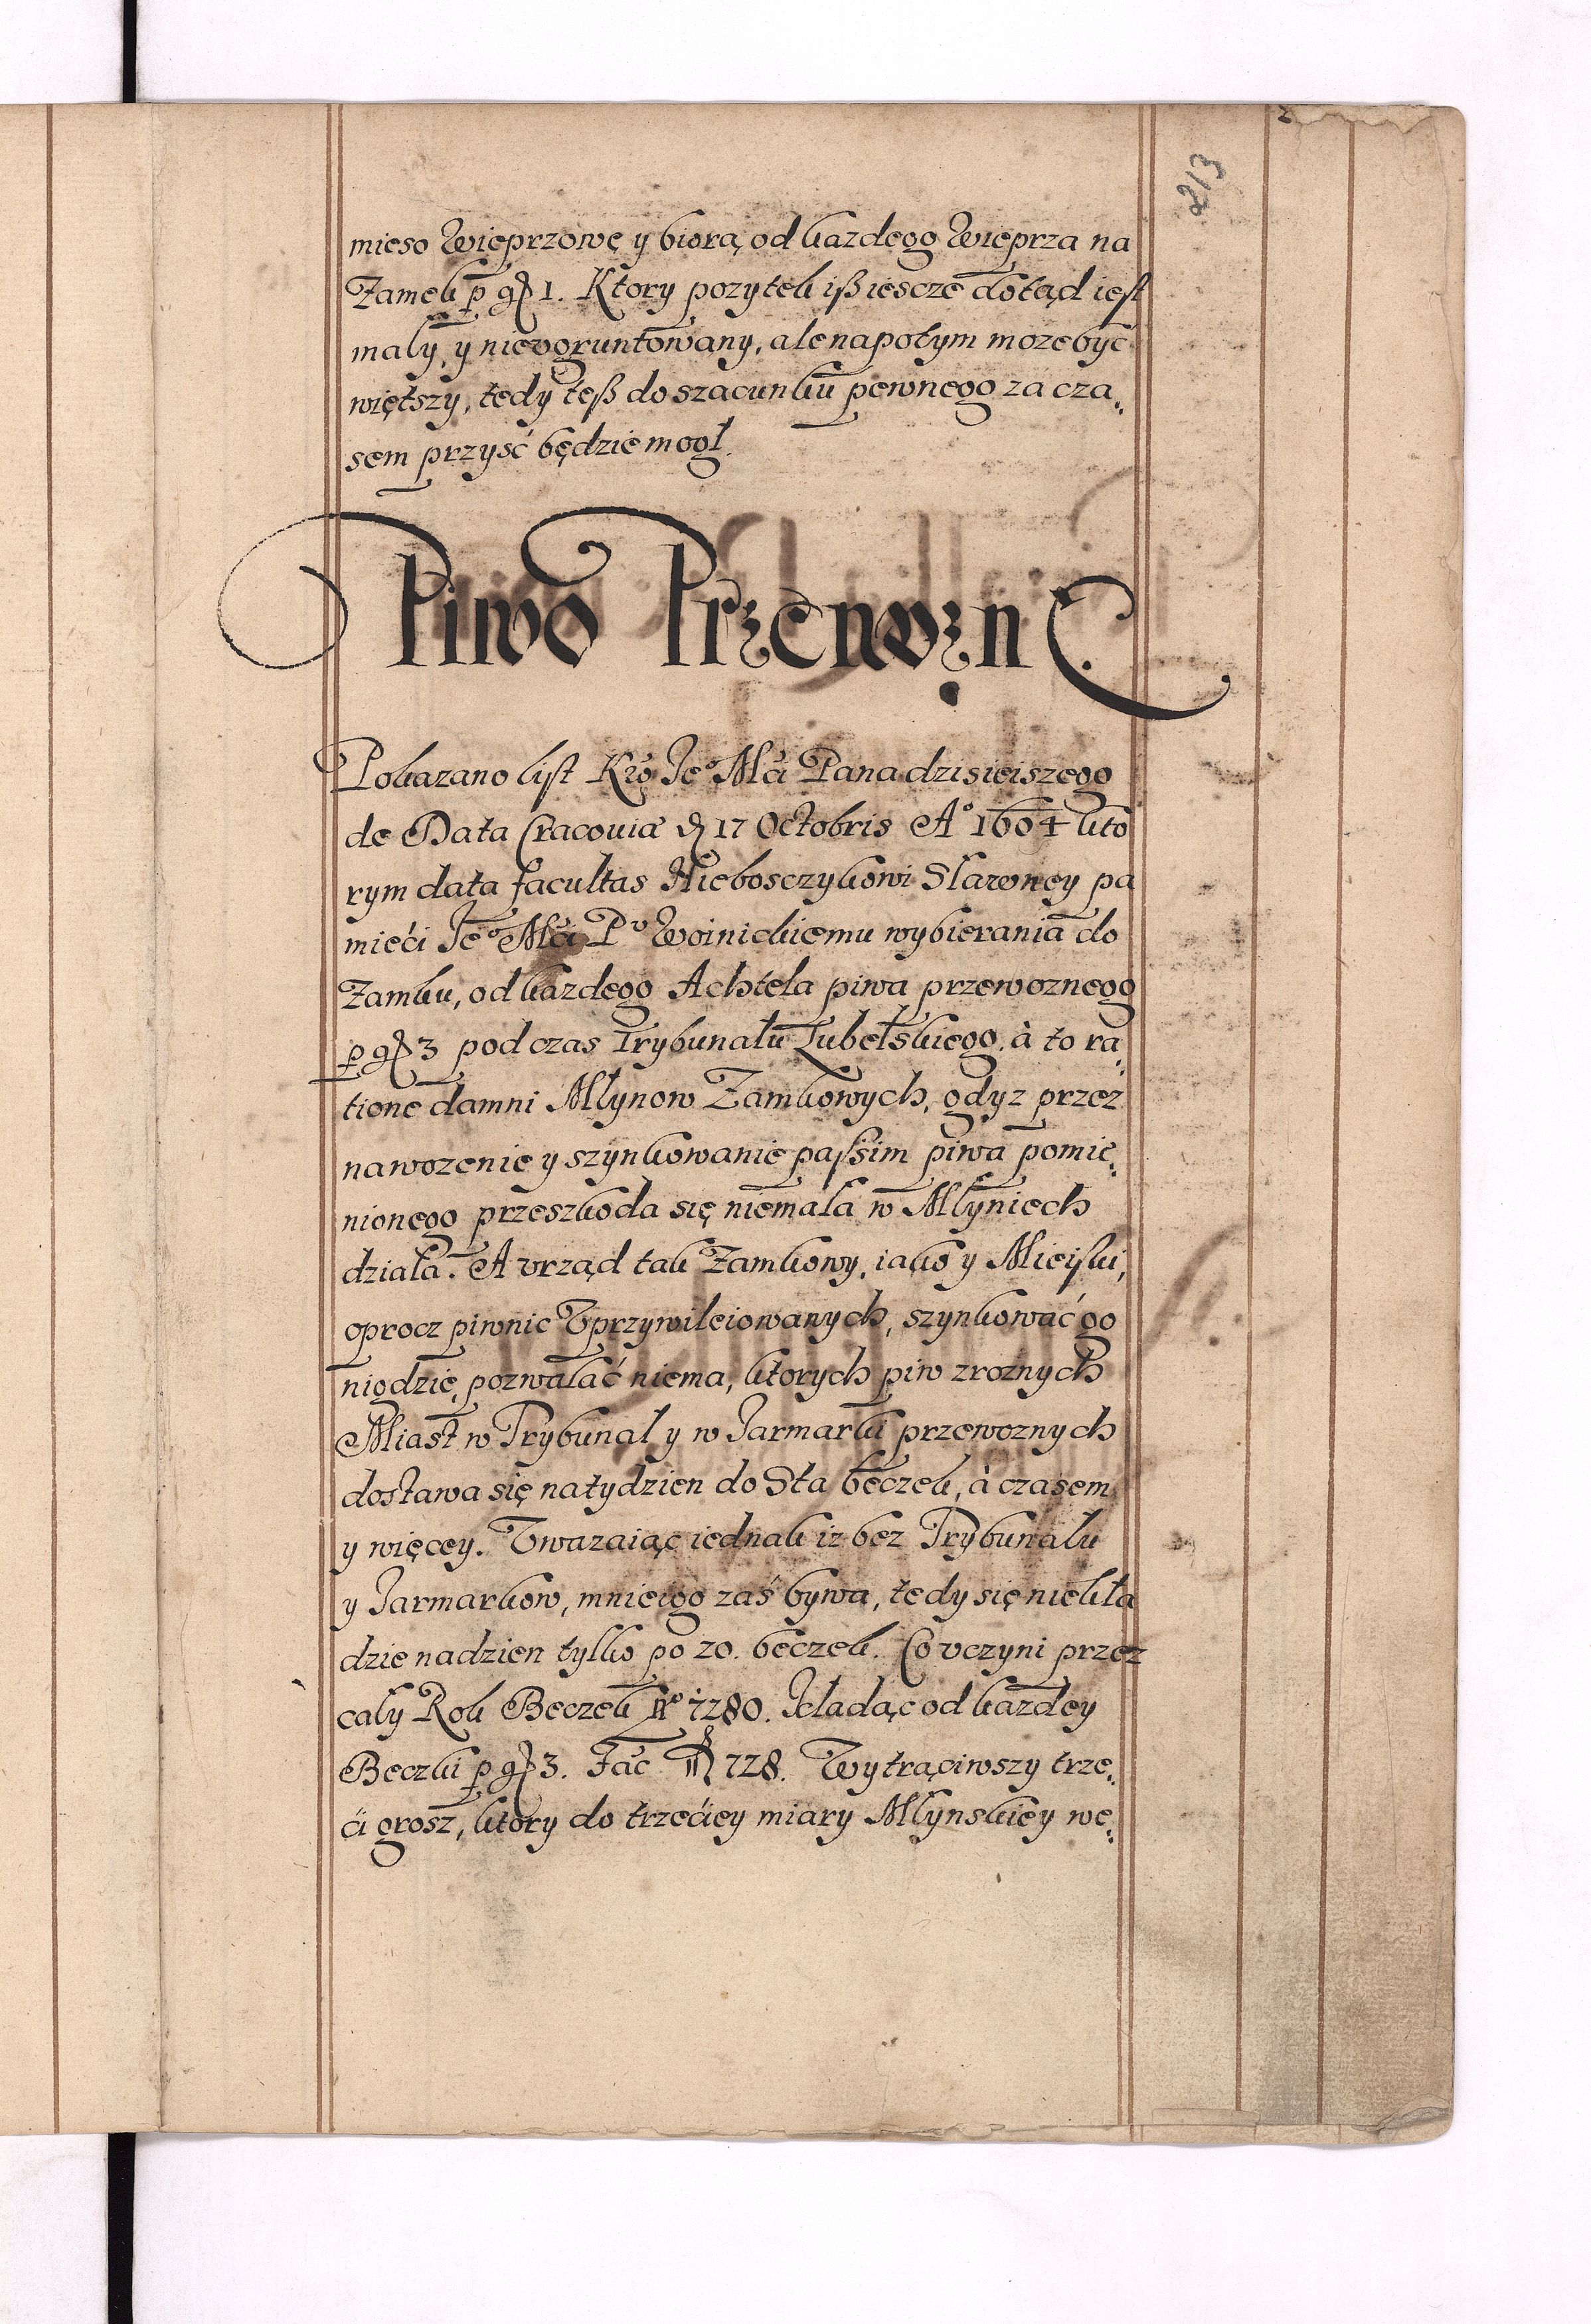 213
mieso Wieprzowe y biorą, od każdego Wieprza na
Zamek p gr 1. Ktory pozytek iß iescze dotąd iest
maly, y nievgruntowany, ale napotym moze być
więtszy, tedy teß do szacunku pewnego za cza„
sem przysć będzie mogł.
Piwo Przewozne
Pokazano list Kro Jeo Mći Pana dzisieiszego
de Data Cracouiæ d 17 Octobris Ao 1604 kto
rym data facultas Nieboszczykowi Slawney pa
mieći Jeo Mći Pv Woinickiemu wybierania do
Zamku, od każdego Achtela piwa przewoznego
p gr 3 podczas Trybunału Lubelskiego, à to ra„
tione damni Młynow Zamkowych, gdyz przez
nawozenie y szynkowanie passim piwa pomie„
nionego przeszkoda się niemała w Młyniech
dziala. A vrząd tak Zamkowy, iako y Mieiski,
oprocz piwnic Vprzywileiowanych, szynkować go
nigdzie, pozwalać niema, ktorych piw zroznych
Miast w Trybunal y w Jarmarki przewoznych
dostawa się natydzien do Sta beczek, à czasem
y więcey. Vwazaiąc iednak iz bez Trybunału
y Jarmarkow, mnieigo zaś bywa, tedy się niekła
dzie nadzien tylko po 20. beczek. Co vczyni przez
caly Rok Beczek No 7280. Kładąc od kazdey
Beczki p gr 3. Fac fl 728. Wytrąciwszy trze„
ći grosz, ktory do trzećiey miary Młynskiey we„